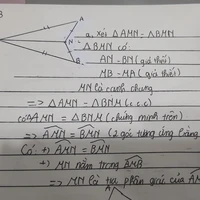 B
A
N
B
a, Xét △AMN = △BMN
△BMN có:
AN = BN (giả thiết)
MB = MA (giả thiết)
MN là cạnh chung
=> △AMN = △BNM (c.c.c)
có △AMN = △BNM (chứng minh trên)
=> AMN = BMN (2 góc tương ứng bằng
Có +) AMN = BMN
+) MN nằm trong AMB
=> MN là tia phân giác của AM
A